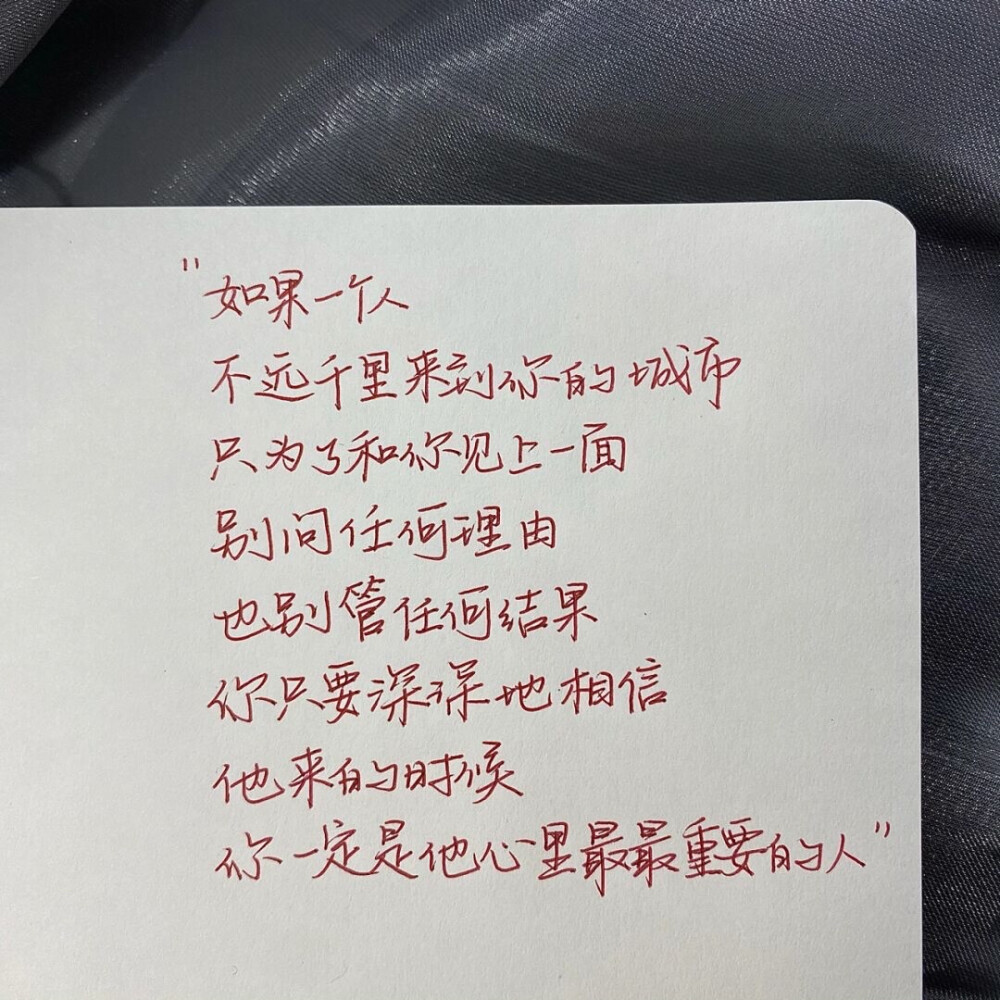 "如果一个人
不远千里来到你的城市
只为了和你见上一面
别问任何理由
也别管任何结果
你只要深深地相信
他来的时候
你一定是他心里最最重要的人"